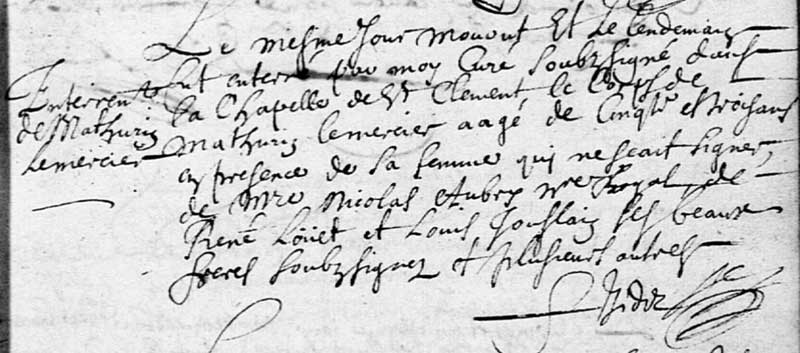 Le mesme Jour mourut Et le lendemain
fut enterré par moy Curé soubzsigné dans
la Chapelle de St Clement le Corps de
Mathurin Lemercier aagé de Cinqte et trois ans
en presence de sa femme qui ne scait signer,
de Mre Nicolas Aubry nre Royal de
René Loüet et Louis Jouslain ses beaux
freres soubzsignez et plusieurs autres
Enterremt
de Mathurin
Lemercier